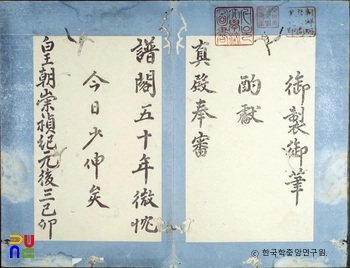 御製御筆
酌獻
真殿奉審
譜閣五十年微忱
今日少伸矣
皇朝崇禎紀元後三己卯
© 한국학중앙연구원